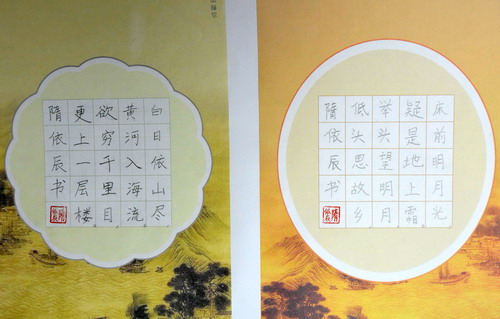 白日依山尽
黄河入海流
欲穷千里目
更上一层楼
隋依辰书
床前明月光
疑是地上霜
举头望明月
低头思故乡
隋依辰书